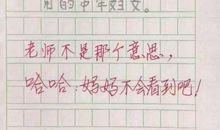 的中年妇女。
老师不是那个意思，
哈哈：妈妈不会看到吧！